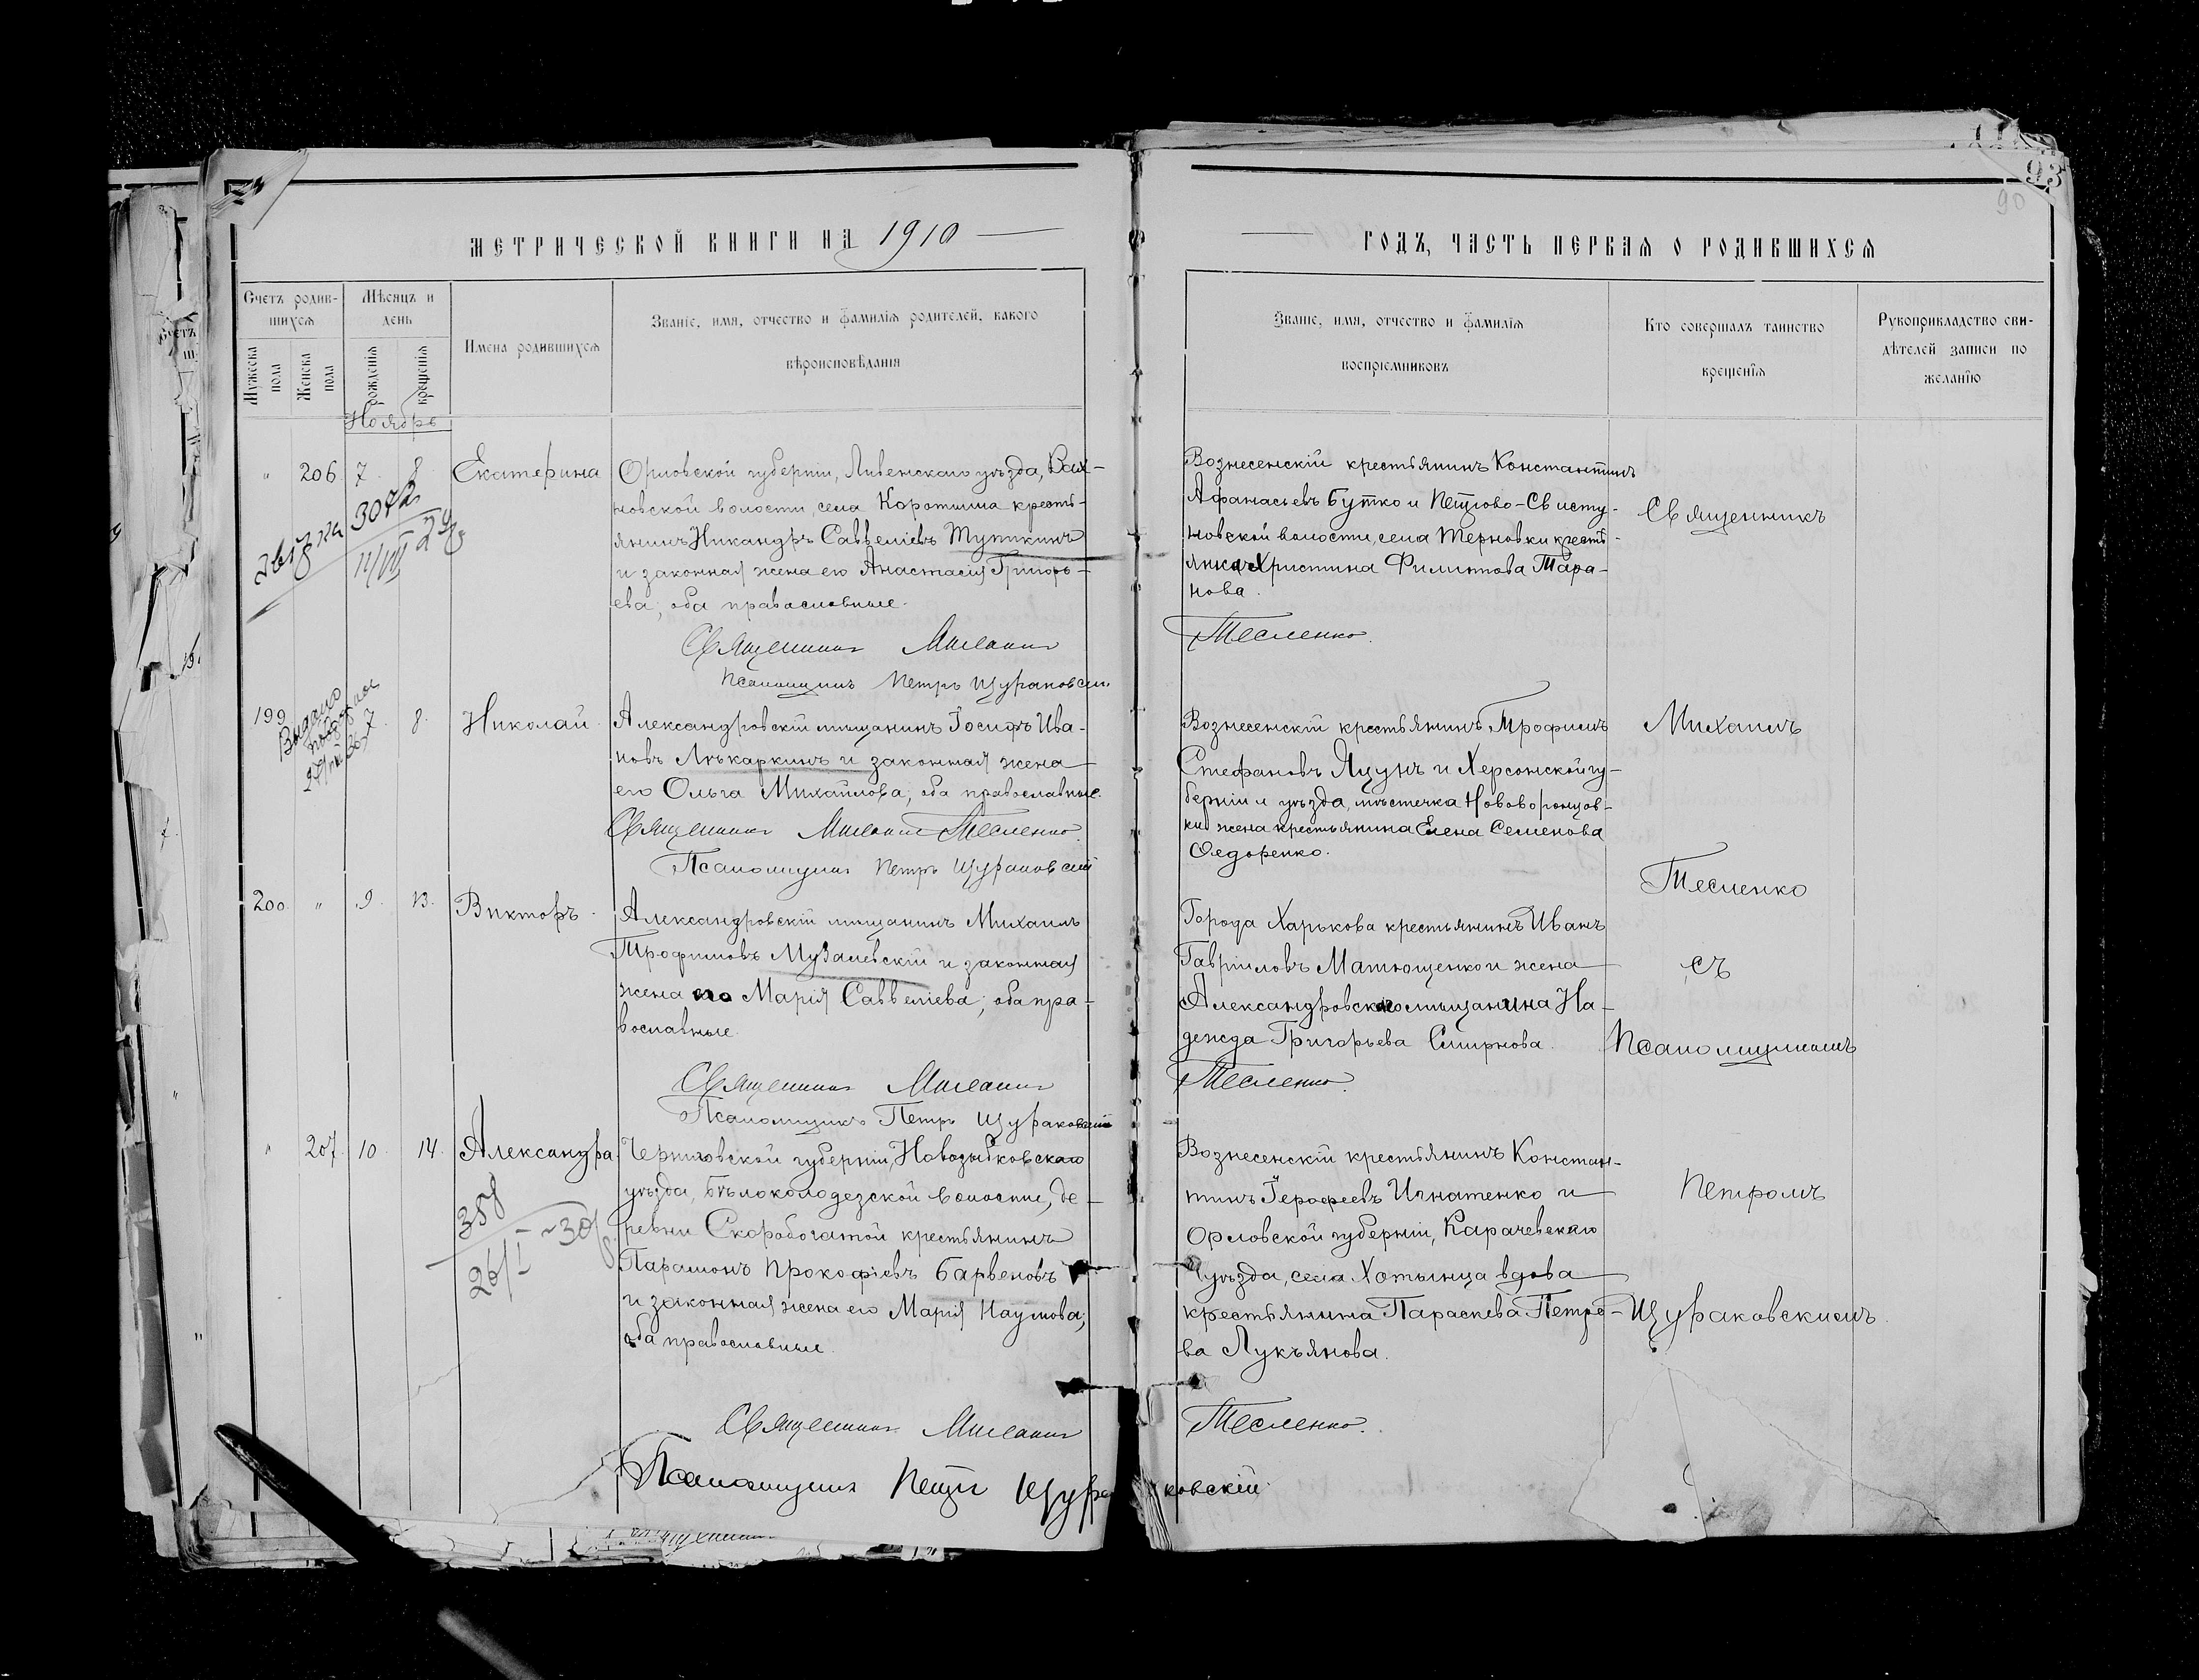 МЕТРИЧЕСКОЙ КНИГИ НА 1910
Счетъ родив-
шихся
Мѣсяцъ и
день
Мужеска
пола
Женска
пола
рожденія
крещенія
Имена родившихся
Званіе, имя, отчество и фамилія родителей, какого
вѣроисповѣданія
Ноябрь
" 206 7 8 Екатерина
Орловской губерніи, Ливенскаго уѣзда, Вах-
новской волости, села Коротыша кресть-
янинъ Никандръ Савельевъ Тупикинъ
и законная жена его Анастасія Григорь-
ева; оба православные.
Священникъ Михаилъ
Псаломщикъ Петръ Щураковскій
3072
11/VII 29
199 7 8. Николай
Выдано
Александровскій мѣщанинъ Іосифъ Ива-
новъ Лѣкаркинъ и законная жена
его Ольга Михайлова; оба православные.
Священникъ Михаилъ Тесленко.
Псаломщикъ Петръ Щураковскій
200 " 9. 13. Викторъ.
Александровскій мѣщанинъ Михаилъ
Трофимовъ Музалевскій и законная
жена его Марія Саввеліева; оба пра-
вославные.
Священникъ Михаилъ
Псаломщикъ Петръ Щураковскій
" 207. 10. 14. Александра
358
26/I -30
Черниговской губерніи, Новозыбковскаго
уѣзда, Бѣлоколодезской волости, де-
ревни Скоробогатой крестьянинъ
Парамонъ Прокофіевъ Барвеновъ
и законная жена его Марія Наумова;
оба православные.
Священникъ Михаилъ
Псаломщикъ Петръ Щураковскій
93
90
ГОДЪ, ЧАСТЬ ПЕРВАЯ О РОДИВШИХСЯ
Званіе, имя, отчество и фамилія
воспріемниковъ
Кто совершалъ таинство
крещенія
Рукоприкладство сви-
дѣтелей записи по
желанію
Вознесенскій крестьянинъ Константинъ
Афанасьевъ Бутко и Петрово-Свисту-
новской волости, села Терновки кресть-
янка Христина Филиппова Тара-
нова.
Тесленко.
Вознесенскій крестьянинъ Трофимъ
Стефановъ Яцунъ и Херсонской гу-
берніи и уѣзда, мѣстечка Нововоронцов-
ки жена крестьянина Елена Семенова
Федоренко.
Города Харькова крестьянинъ Иванъ
Гавріиловъ Матющенко и жена
Александровскаго мѣщанина На-
дежда Григорьева Смирнова.
Тесленко.
Вознесенскій крестьянинъ Констан-
тинъ Іерофеевъ Игнатенко и
Орловской губерніи, Карачевскаго
уѣзда, села Хотынца вдова
крестьянина Параскева Петро-
ва Лукъянова.
Тесленко.
Священникъ
Михаилъ
Тесленко
съ
Псаломщикомъ
Петромъ
Щураковскимъ.